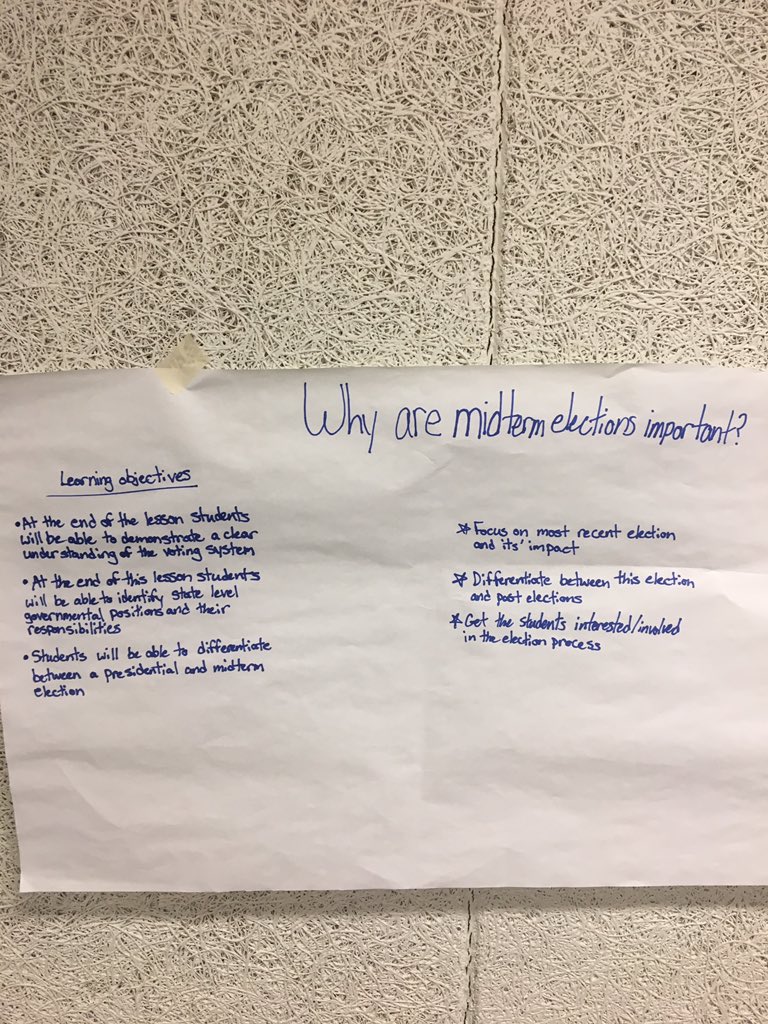 Why are midterm elections important?
Learning objectives
• At the end of the lesson students
will be able to demonstrate a clear
understanding of the voting system
• At the end of this lesson students
will be able to identify state level
governmental positions and their
responsibilities
• Students will be able to differentiate
between a presidential and midterm
election
☆ Focus on most recent election
and its' impact
☆ Differentiate between this election
and post elections
☆ Get the students interested/involved
in the election process